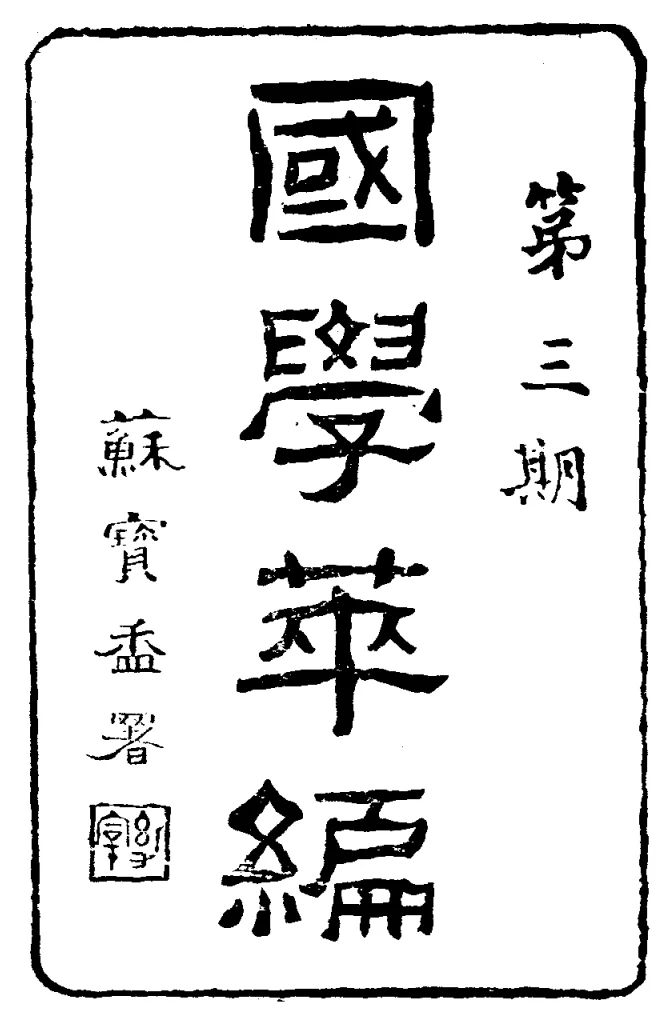 第三期
國學萃編
蘇寶盉署